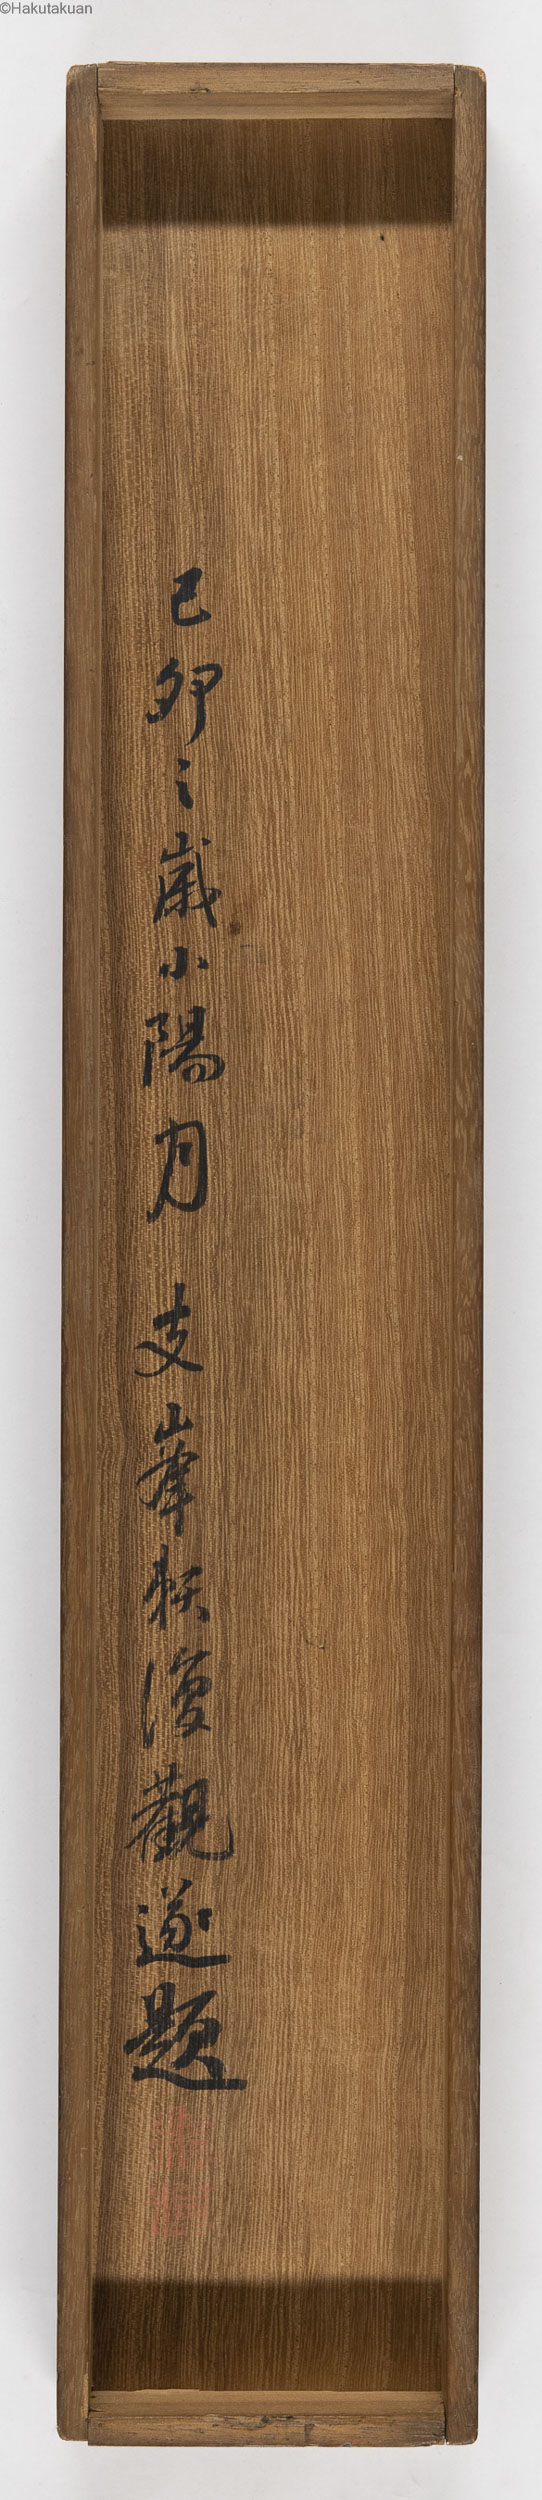 ©Hakutakuan
己卯之歳小陽月 支峯頼復観遂題